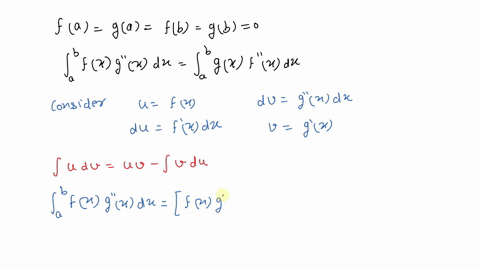 f(a) = g(a) = f(b) = g(b) = 0
∫_a^b f(x) g''(x) dx = ∫_a^b g(x) f''(x) dx
Consider u = f(x) dv = g''(x) dx
du = f'(x) dx v = g'(x)
∫ u dv = uv - ∫ v du
∫_a^b f(x) g''(x) dx = [ f(x) g'